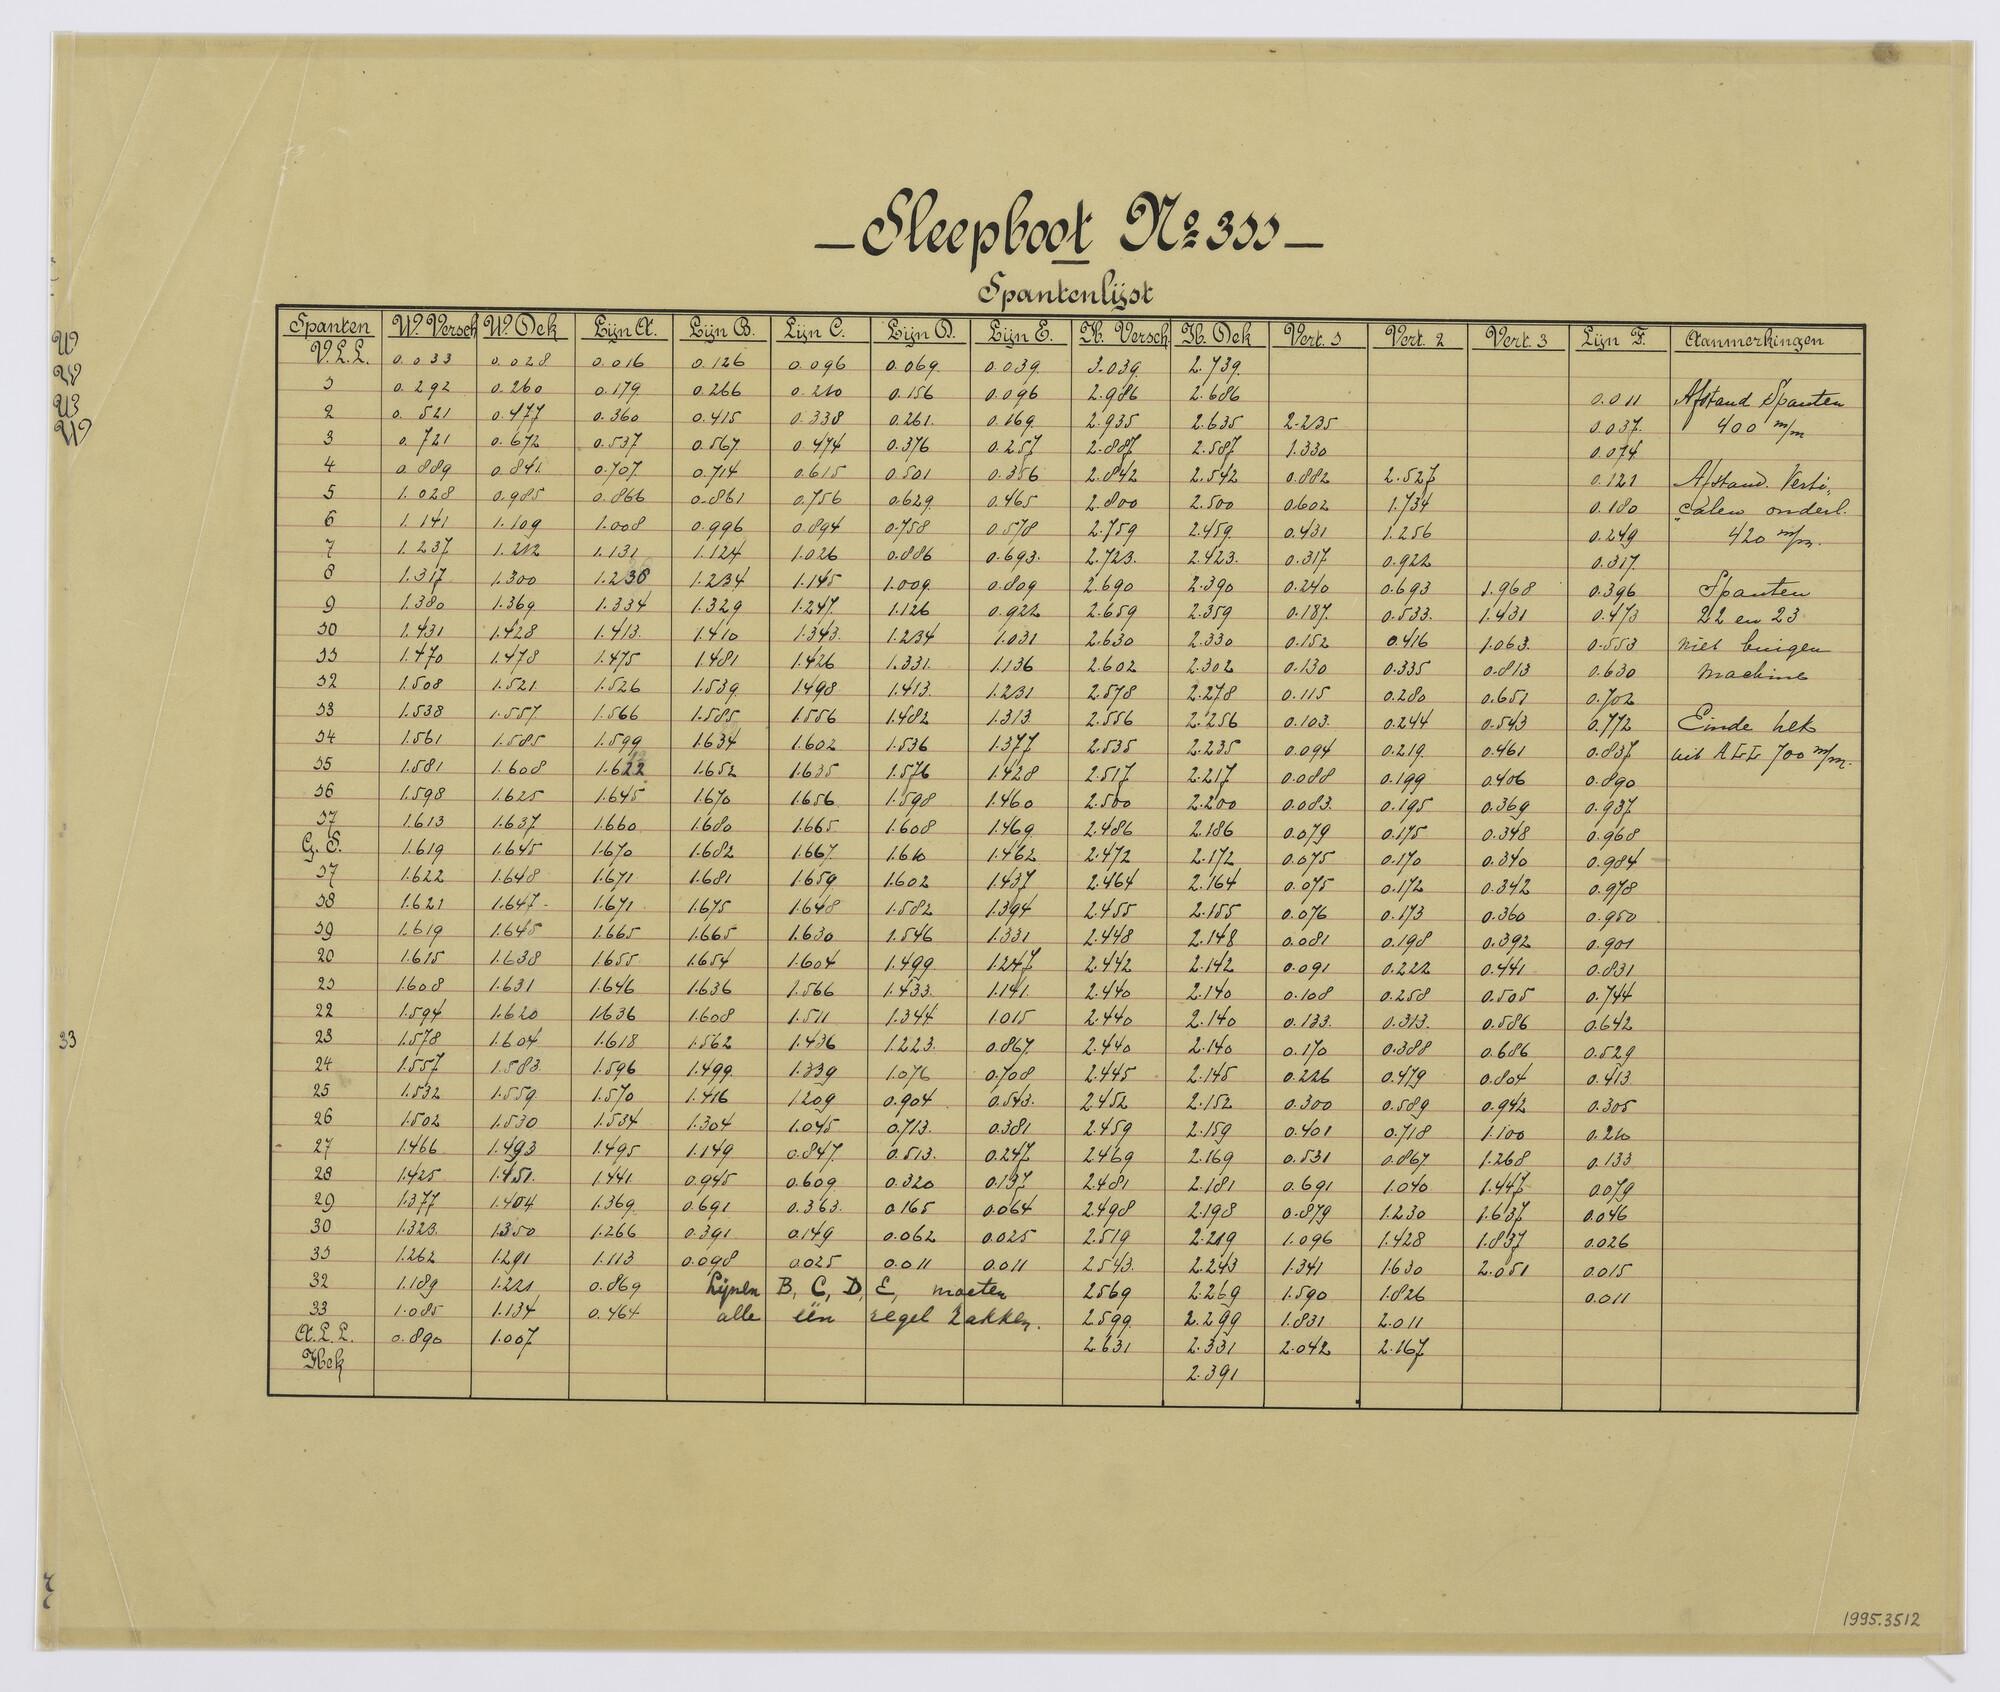 Sleepboot Nº 311
Spantenlijst
Spanten W. Versch W. Dek Lijn A. Lijn B. Lijn C. Lijn D. Lijn E. H. Versch H. Dek Vert. 1 Vert. 2 Vert. 3 Lijn F. Aanmerkingen
V.L.L. 0.033 0.028 0.016 0.126 0.096 0.069 0.039 3.039 2.739
1 0.292 0.260 0.179 0.266 0.210 0.156 0.096 2.986 2.686 0.011 Afstand Spanten
2 0.521 0.477 0.360 0.415 0.338 0.261 0.169 2.935 2.635 2.235 0.037 400 m/m
3 0.721 0.672 0.537 0.567 0.474 0.376 0.257 2.887 2.587 1.330 0.074
4 0.889 0.841 0.707 0.714 0.615 0.501 0.356 2.842 2.542 0.882 2.527 0.121 Afstand. Verti,
5 1.028 0.985 0.866 0.861 0.756 0.629 0.465 2.800 2.500 0.602 1.734 0.180 calen onderl.
6 1.141 1.109 1.008 0.996 0.894 0.758 0.578 2.759 2.459 0.431 1.256 0.249 420 m/m.
7 1.237 1.212 1.131 1.124 1.026 0.886 0.693 2.723 2.423 0.317 0.922 0.317
8 1.317 1.300 1.238 1.234 1.145 1.009 0.809 2.690 2.390 0.240 0.693 1.968 0.396 Spanten
9 1.380 1.369 1.334 1.329 1.247 1.126 0.922 2.659 2.359 0.187 0.533 1.431 0.473 22 en 23
10 1.431 1.428 1.413 1.410 1.343 1.234 1.031 2.630 2.330 0.152 0.416 1.063 0.553 niet buigen
11 1.470 1.478 1.475 1.481 1.426 1.331 1.136 2.602 2.302 0.130 0.335 0.813 0.630 machine
12 1.508 1.521 1.526 1.539 1.498 1.413 1.231 2.578 2.278 0.115 0.280 0.651 0.702
13 1.538 1.557 1.566 1.585 1.556 1.482 1.313 2.556 2.256 0.103 0.244 0.543 0.772 Einde hek
14 1.561 1.585 1.599 1.634 1.602 1.536 1.377 2.535 2.235 0.094 0.219 0.461 0.837 uit A L L 700 m/m.
15 1.581 1.608 1.622 1.652 1.635 1.576 1.428 2.517 2.217 0.088 0.199 0.406 0.890
16 1.598 1.625 1.645 1.670 1.656 1.598 1.460 2.500 2.200 0.083 0.195 0.369 0.937
17 1.613 1.637 1.660 1.680 1.665 1.608 1.469 2.486 2.186 0.079 0.175 0.348 0.968
G. S. 1.619 1.645 1.670 1.682 1.667 1.610 1.462 2.472 2.172 0.075 0.170 0.340 0.984
17 1.622 1.648 1.671 1.681 1.659 1.602 1.437 2.464 2.164 0.075 0.172 0.342 0.978
18 1.621 1.647 1.671 1.675 1.648 1.582 1.394 2.455 2.155 0.076 0.173 0.360 0.950
19 1.619 1.645 1.665 1.665 1.630 1.546 1.331 2.448 2.148 0.081 0.198 0.392 0.901
20 1.615 1.638 1.655 1.654 1.604 1.499 1.247 2.442 2.142 0.091 0.222 0.441 0.831
21 1.608 1.631 1.646 1.636 1.566 1.433 1.141 2.440 2.140 0.108 0.258 0.505 0.744
22 1.594 1.620 1.636 1.608 1.511 1.344 1.015 2.440 2.140 0.133 0.313 0.586 0.642
23 1.578 1.604 1.618 1.562 1.436 1.223 0.867 2.440 2.140 0.170 0.388 0.686 0.529
24 1.557 1.583 1.596 1.499 1.339 1.076 0.708 2.445 2.145 0.226 0.479 0.804 0.413
25 1.532 1.559 1.570 1.416 1.209 0.904 0.543 2.452 2.152 0.300 0.589 0.942 0.305
26 1.502 1.530 1.534 1.304 1.045 0.713 0.381 2.459 2.159 0.401 0.718 1.100 0.210
27 1.466 1.493 1.495 1.149 0.847 0.513 0.247 2.469 2.169 0.531 0.867 1.268 0.133
28 1.425 1.451 1.441 0.945 0.609 0.320 0.137 2.481 2.181 0.691 1.040 1.447 0.079
29 1.377 1.404 1.369 0.691 0.363 0.165 0.064 2.498 2.198 0.879 1.230 1.637 0.046
30 1.323 1.350 1.266 0.391 0.149 0.062 0.025 2.519 2.219 1.096 1.428 1.837 0.026
31 1.262 1.291 1.113 0.098 0.025 0.011 0.011 2.543 2.243 1.341 1.630 2.051 0.015
32 1.189 1.221 0.869 Lijnen B, C, D, E, moeten 2.569 2.269 1.590 1.826 0.011
33 1.085 1.134 0.464 alle één regel zakken. 2.599 2.299 1.831 2.011
A.L.L. 0.890 1.007 2.631 2.331 2.042 2.167
Hek 2.391
33
1995.3512